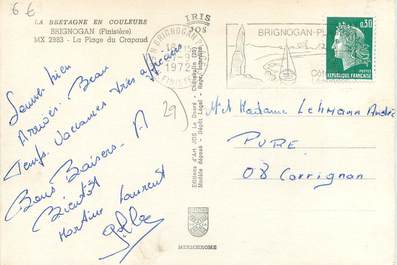 6 €
LA BRETAGNE EN COULEURS
BRIGNOGAN (Finistère)
MX 2983 - La Plage du Crapaud
IRIS
JOS
BRIGNOGAN-PL
0,30
REPUBLIQUE FRANÇAISE
Sommes bien
Arrivés. Beau
Temps. Vacances très
29
Bons Baisers. A
Bientôt
Martine Laurent
Editions d'Art JOS Le Doaré - Châteaulin
Modèle déposé - Dépôt Légal
Mr et Madame Lehmann André
PURE
08 Carrignan
MEXICHROME